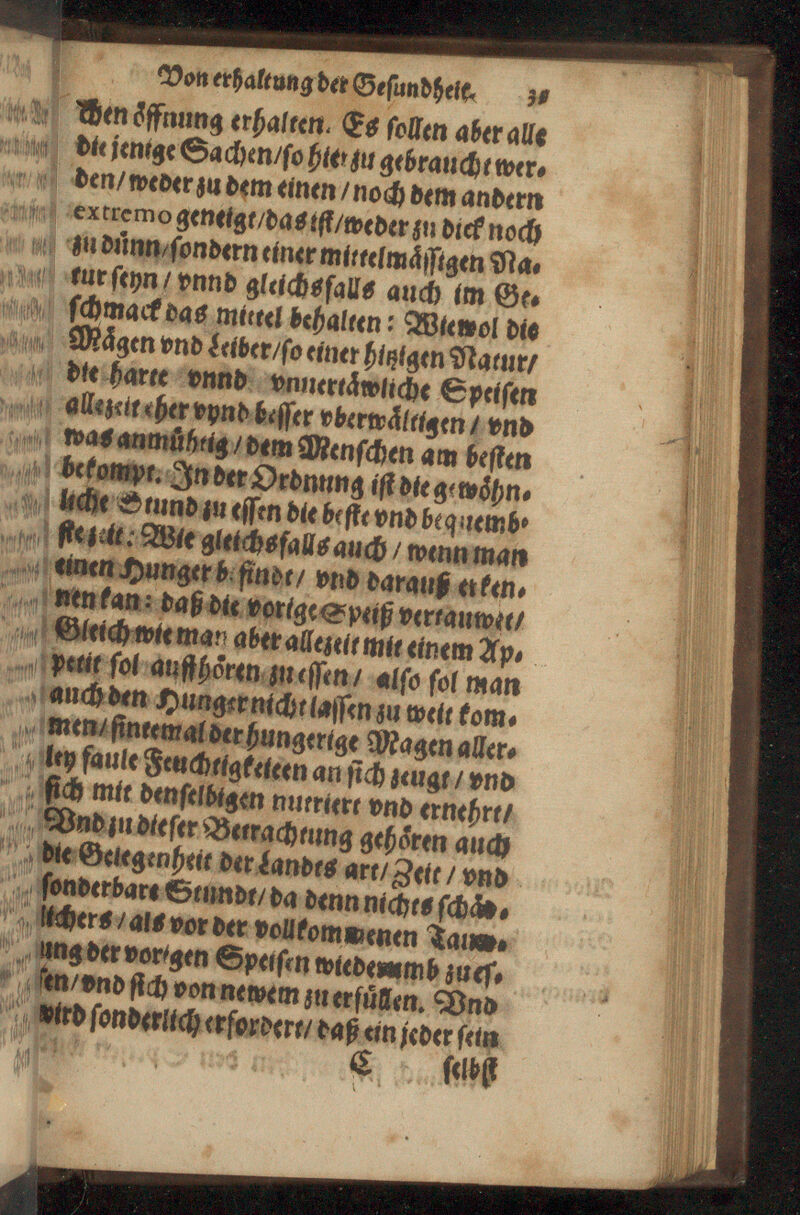 Von erhaltung der Geſundheit.
chen oͤffnung erhalten. Es ſollen aber alle
die jenige Sachen/ſo hier zu gebraucht wer⸗
den/weder zu dem einen/noch dem andern
extremo geneigt/das iſt/weder zu dick noch
zu duͤnn/ſondern einer mittelmaͤſſigen Na⸗
tur ſeyn/vnnd gleichsfalls auch im Ge⸗
ſchmack das mittel behalten: Wiewol die
Maͤgen vnd Leiber/ſo einer hitzigen Natur/
die harte vnnd vnuertaͤwliche Speiſen
allezeit eher vnnd beſſer vberwaͤltigen/vnd
was anmuͤhtig/dem Menſchen am beſten
bekompt. In der Ordnung iſt die gewoͤhn⸗
liche Stund zu eſſen die beſte vnd bequemb⸗
ſte zeit: Wie gleichsfalls auch/wenn man
einen Hunger befindt/vnd darauß erken⸗
nen kan: daß die vorige Speiß vertauwet/
Gleich wie man aber allezeit mit einem Ap⸗
petit ſol auffhoͤren zu eſſen/alſo ſol man
auch den Hunger nicht laſſen zu weit kom⸗
men/ſintemal der hungerige Magen aller⸗
ley faule Feuchtigkeiten an ſich zeugt/vnd
ſich mit denſelbigen nutriert vnd ernehrt/
Vnd zu dieſer Betrachtung gehoͤren auch
die Gelegenheit der Landts art/Zeit/vnd
ſonderbare Stundt/da denn nichts ſchaͤd⸗
lichers/als vor der vollkommenen Tauw⸗
ung der vorigen Speiſen wiedeꝛumb zu eſ⸗
ſen/vnd ſich von newem zu erfuͤllen. Vnd
wird ſonderlich erfordert/daß ein jeder ſein
C ſelbſt